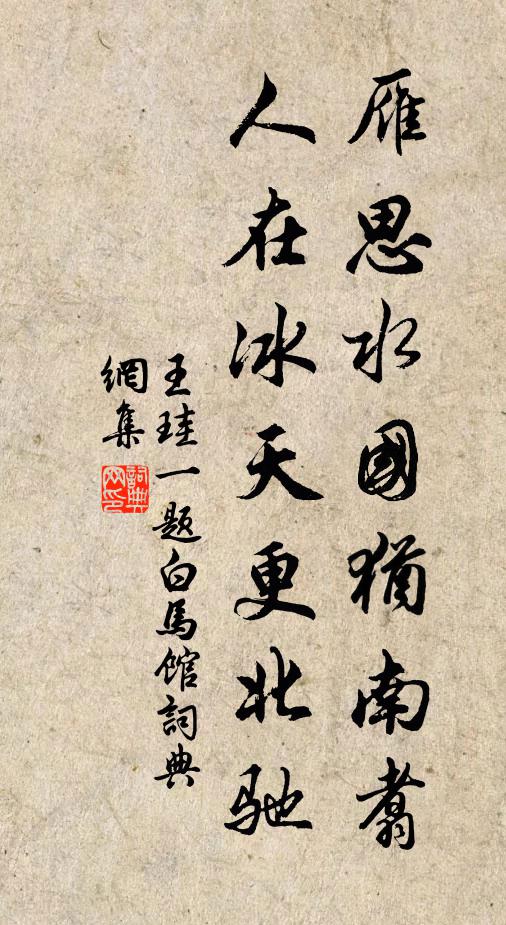 雁思水國猶南翥
人在冰天更北馳
王珪一题白馬館詞典
網集
詞典網印